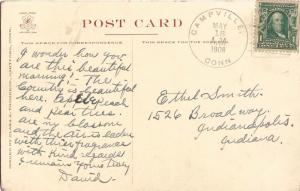 POST CARD
THIS SPACE FOR CORRESPONDENCE
THIS SPACE FOR ADDRESS ONLY
CAMPVILLE,
MAY
18
1908
CONN
I wonder how you
are this beautiful
morning! - The
Country is beautiful
here. Peach
and Pear trees
are in blossom
and the air is laden
with their fragrances
with Kind regards
I remain yours truly
David -
Ethel Smith.
1526 Broadway.
Indianapolis.
Indiana.